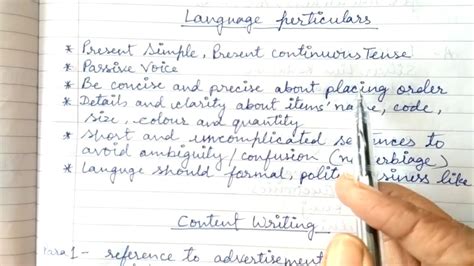 Language perticulars
* Present Simple, Present continuous Tense
* Passive Voice
* Be concise and precise about placing order
* Details and clarity about items' name, code,
size, colour and quantity
* Short and uncomplicated to
avoid ambiguity / confusion
* Languge should formal, like
Content Writing
Para 1 - reference to advertisement